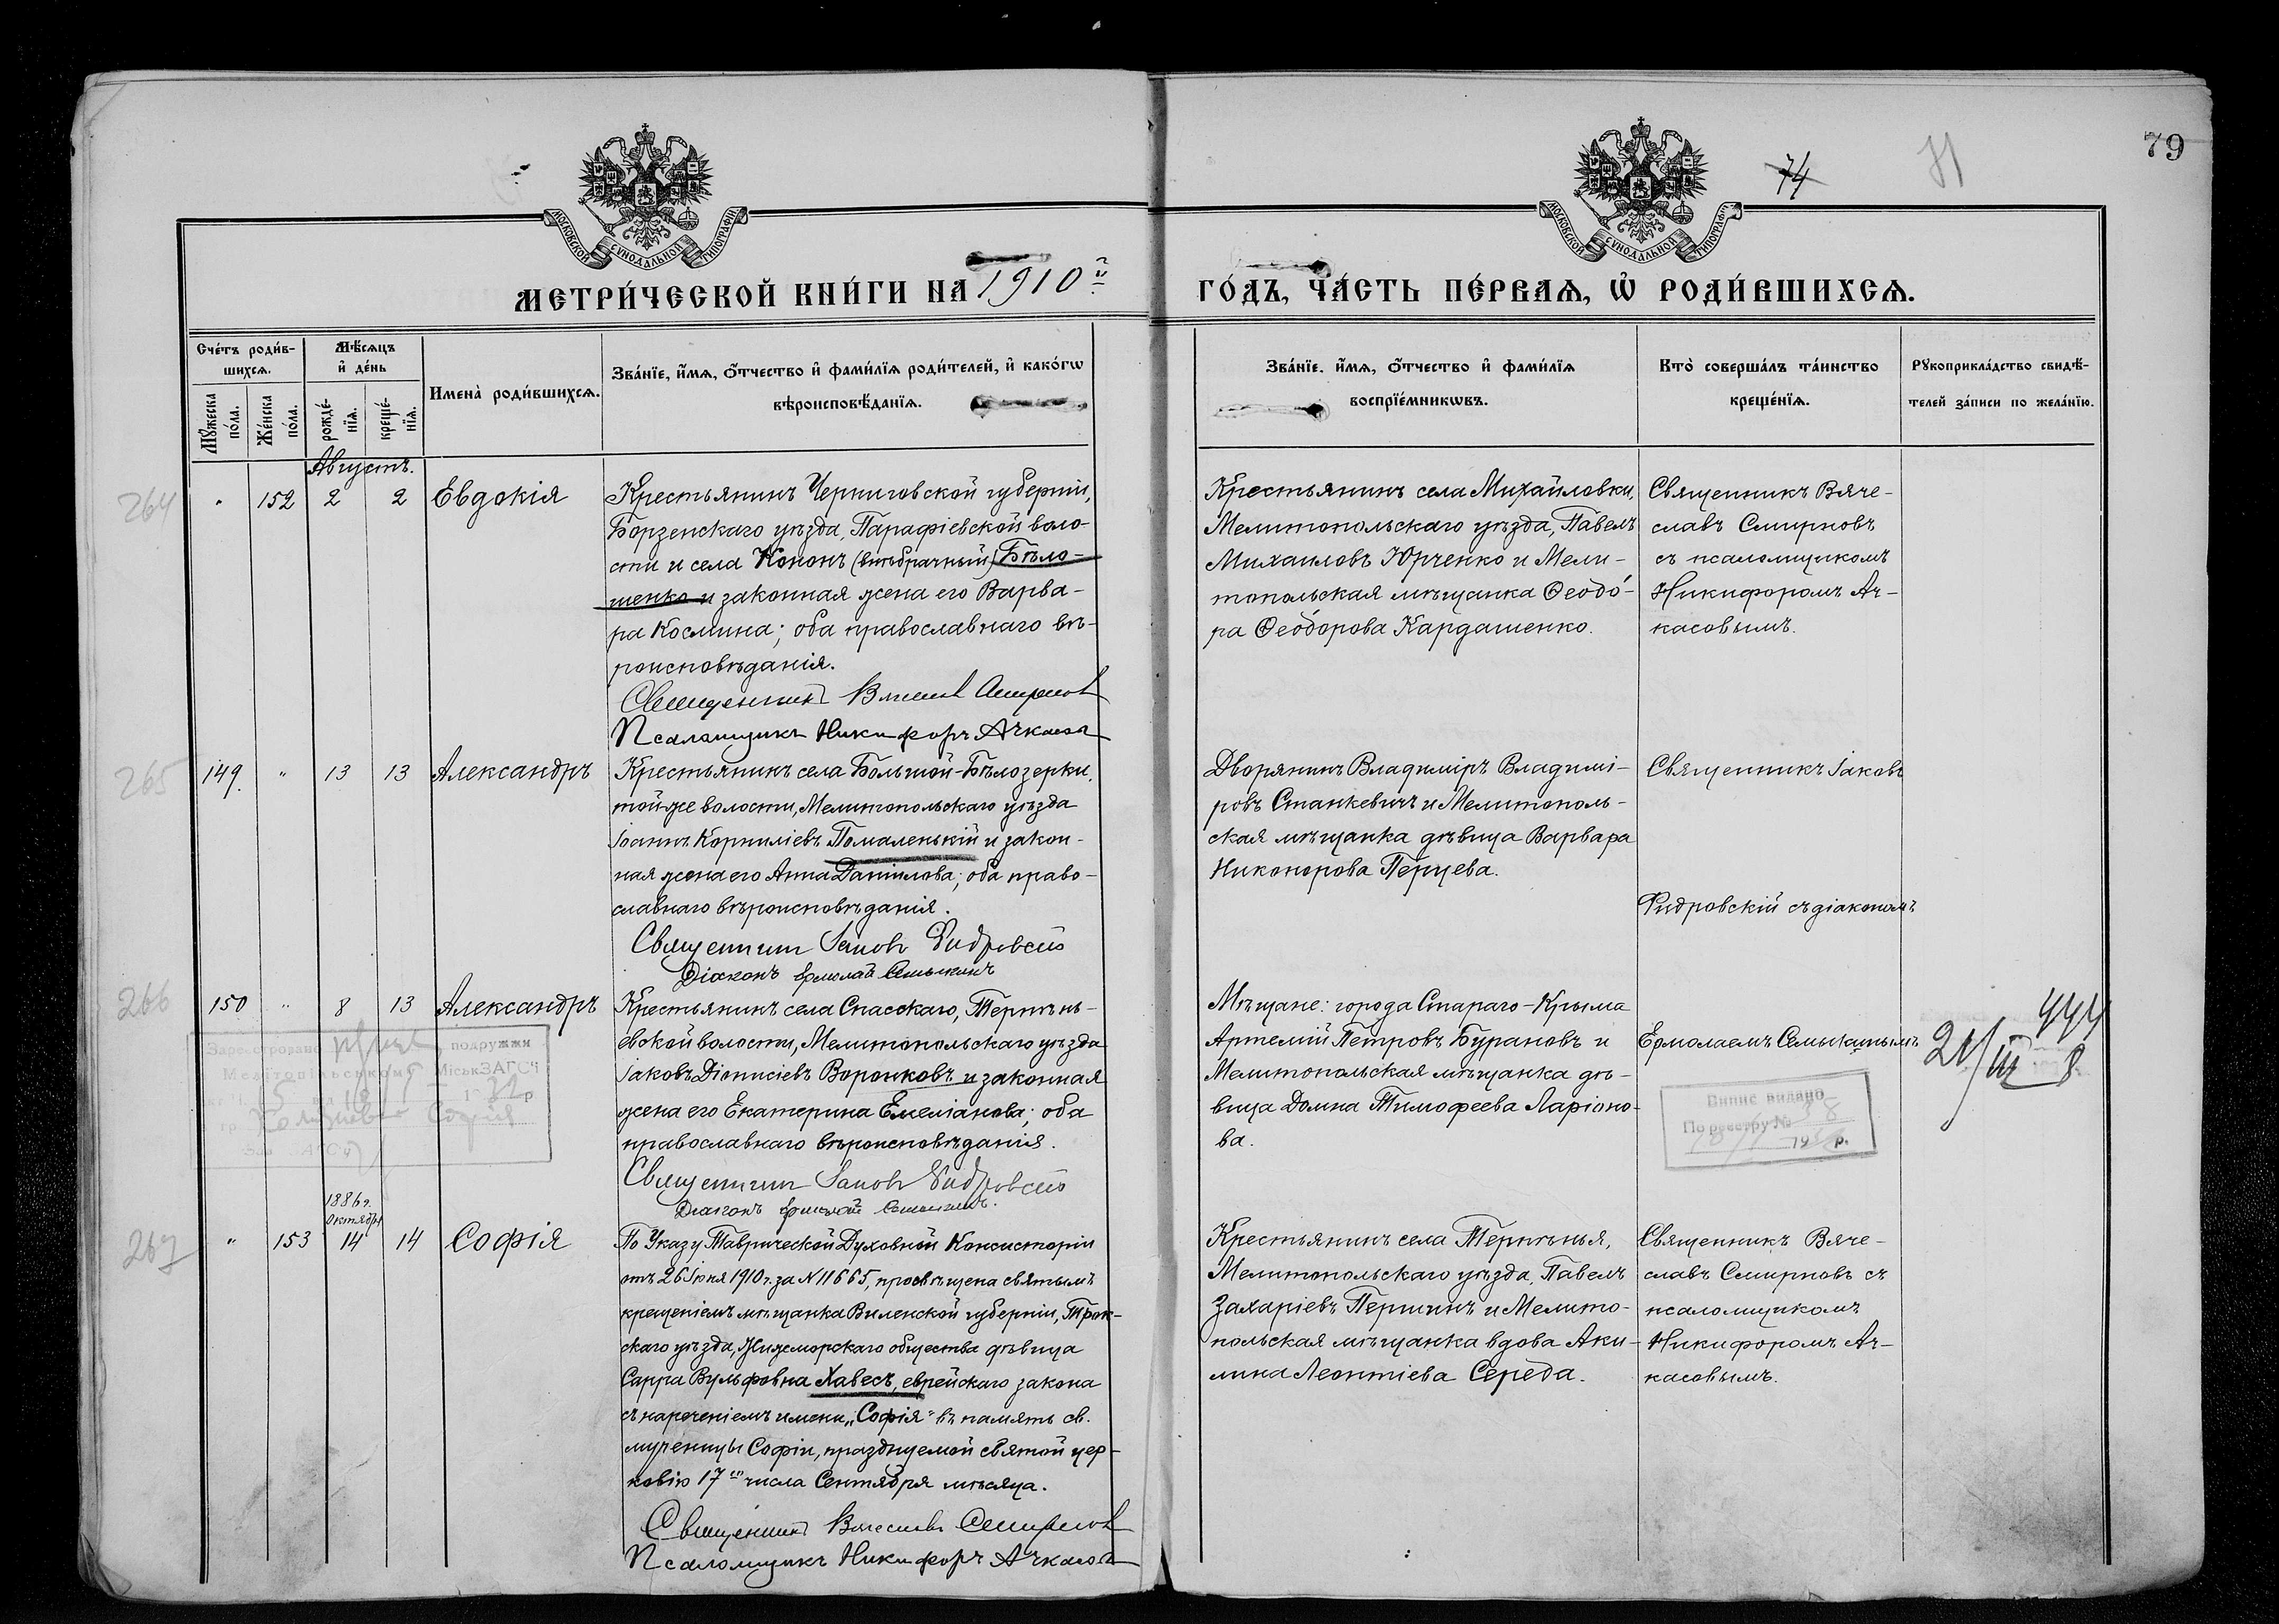 79
74
МОСКОВСКОЙ СѴНОДАЛЬНОЙ ТИПОГРАФІИ
МОСКОВСКОЙ СѴНОДАЛЬНОЙ ТИПОГРАФІИ
МЕТРИ́ЧЕСКОЙ КНИ́ГИ НА 1910й
ГО́ДЪ, ЧА́СТЬ ПЕ́РВАЯ, Ѡ҆ РОДИ́ВШИХСЯ.
Сче́тъ роди́в-
шихся.
Мѣ́сяцъ
и҆ де́нь
Мꙋ́жеска по́ла.
Же́нска по́ла.
рожде́-
нїя.
креще́-
нїя.
Имена̀ роди́вшихся.
Зва́нїе, и҆́мя, о҆́тчество и҆ фами́лїя роди́телей, и҆ како́гѡ
вѣроисповѣ́данїя.
Зва́нїе. и҆́мя, о҆́тчество и҆ фами́лїя
воспрїе́мникѡвъ.
Кто̀ соверша́лъ та́инство
креще́нїя.
Рꙋкоприкла́дство свидѣ́-
телей за́писи по жела́нїю.
Августъ.
264
"
152
2
2
Евдокія
Крестьянинъ Черниговской губерніи,
Борзенскаго уѣзда, Парафіевской воло-
сти и села Кононъ (внѣбрачный) Бѣло-
шенко и законная жена его Варва-
ра Космина; оба православнаго вѣ-
роисповѣданія.
Священникъ Вячеславъ Смирновъ
Псаломщикъ Никифоръ Ачкасовъ
Крестьянинъ села Михайловки,
Мелитопольскаго уѣзда, Павелъ
Михаиловъ Юрченко и Мели-
топольская мѣщанка Ѳеодо́-
ра Ѳео́дорова Кардашенко.
Священникъ Вяче-
славъ Смирновъ
съ псаломщикомъ
Никифоромъ Ач-
касовымъ.
265
149.
"
13
13
Александръ
Крестьянинъ села Большой-Бѣлозерки,
той же волости, Мелитопольскаго уѣзда
Іоаннъ Корниліевъ Помаленькій и закон-
ная жена его Анна Даніилова; оба право-
славнаго вѣроисповѣданія.
Священникъ Іаковъ Фидровскій
Діаконъ Ермолай Семыкинъ
Дворянинъ Владиміръ Владимі-
ровъ Станкевичъ и Мелитополь-
ская мѣщанка дѣвица Варвара
Никонорова Перцева.
Священникъ Іаковъ
Фидровскій съ діакономъ
266
150
"
8
13
Александръ
Крестьянинъ села Спасскаго, Терпѣнь-
евской волости, Мелитопольскаго уѣзда
Іаковъ Діонисіевъ Воронковъ и законная
жена его Екатерина Емеліанова; оба
православнаго вѣроисповѣданія.
Священникъ Іаковъ Фидровскій
Діаконъ Ермолай Семыкинъ.
Мѣщане: города Стараго-Крыма
Артемій Петровъ Бурановъ и
Мелитопольская мѣщанка дѣ-
вица Домна Тимофеева Ларіоно-
ва.
Ермолаемъ Семыкинымъ
Випис видано
По реєстру № 38
подружжи
МіськЗАГСЧ
267
"
153
1886 г.
Октября
14
14
Софія
По Указу Таврической Духовной Консисторіи
отъ 26 Іюня 1910 г. за № 11665, просвѣщена святымъ
крещеніемъ мѣщанка Виленской губерніи, Трок-
скаго уѣзда, Жижморскаго общества дѣвица
Сарра Вульфовна Хавесъ, еврейскаго закона
съ нареченіемъ имени „Софія" въ память св.
мученицы Софіи, празднуемой святой цер-
ковію 17го числа Сентября мѣсяца.
Священникъ Вячеславъ Смирновъ
Псаломщикъ Никифоръ Ачкасовъ
Крестьянинъ села Терпѣнья,
Мелитопольскаго уѣзда, Павелъ
Захаріевъ Першинъ и Мелито-
польская мѣщанка вдова Аки-
лина Леонтіева Середа.
Священникъ Вяче-
славъ Смирновъ съ
псаломщикомъ
Никифоромъ Ач-
касовымъ.